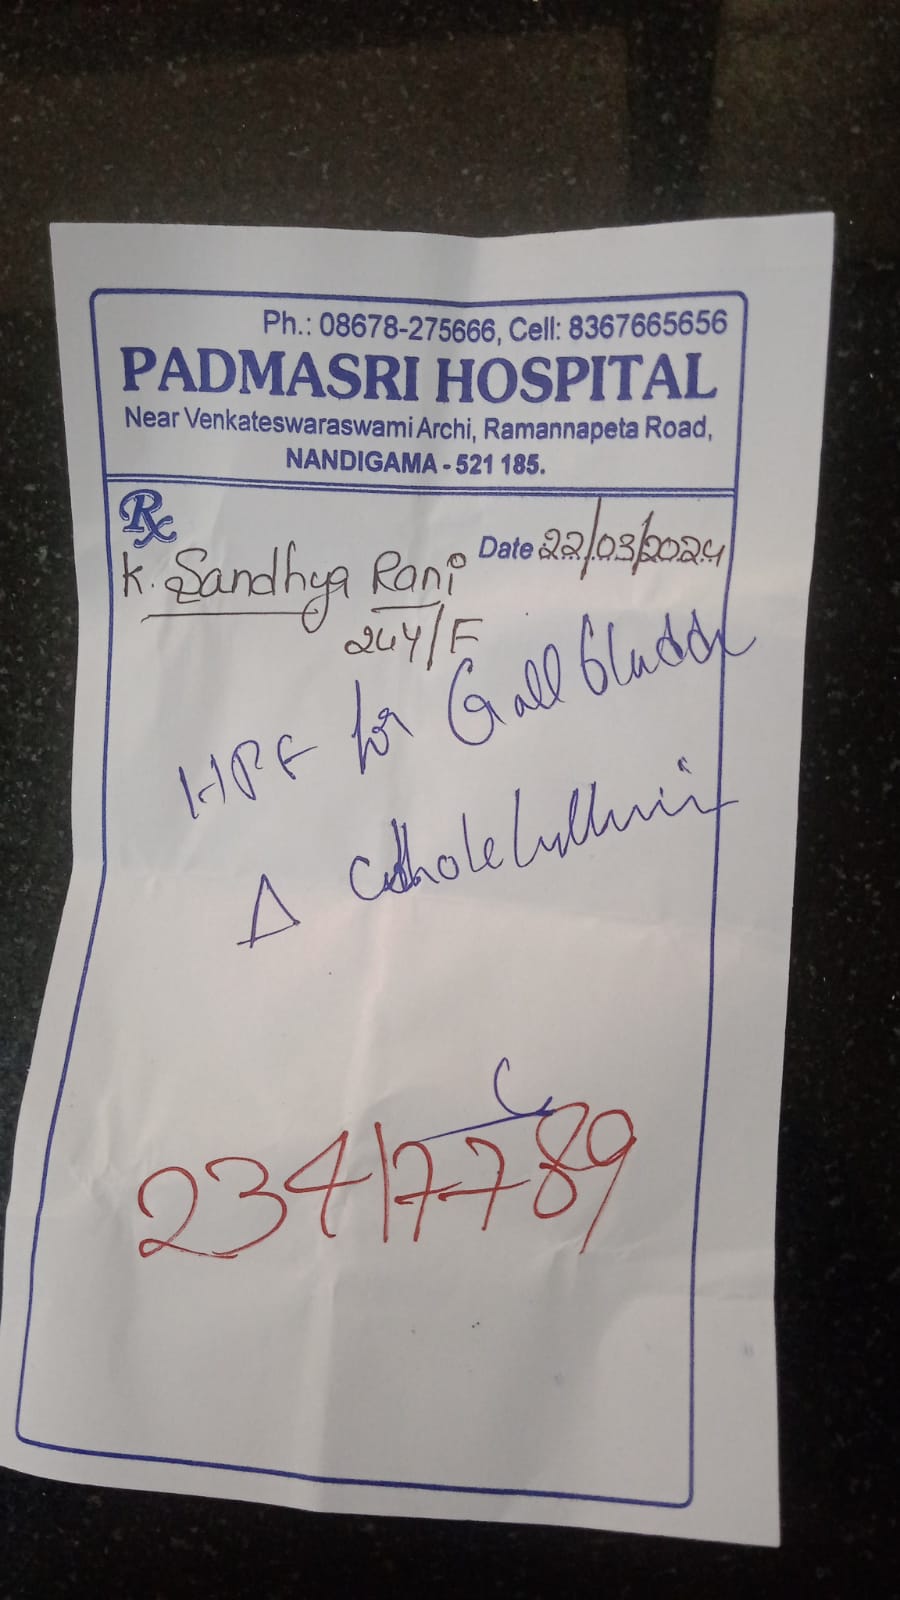 Ph.: 08678-275666, Cell: 8367665656
PADMASRI HOSPITAL
Near Venkateswaraswami Archi, Ramannapeta Road,
NANDIGAMA - 521 185.
Rx
Date 22/03/2024
K. Sandhya Rani
24Y/F
for Gall bladder
Δ
23417789